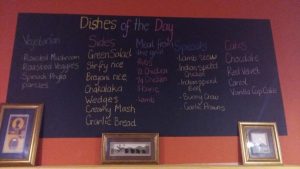 Dishes of the Day
Vegetarian
- Roasted Mushroom
- Roasted Veggies
- Spinach Phyllo
parcels
Sides
Green Salad
Stirfry rice
Biryani rice
Chakalaka
Wedges
Creamy Mash
Garlic Bread
Meat from
the grill
Ribs
1/2 Chicken
1/4 Chicken
Wings
Lamb
Specials
- Lamb stew
- Indian spiced
Chicken
- Indian spiced
Beef
- Bunny Chow
- Garlic Prawns
Cakes
Chocolate
Red Velvet
Carrot
Vanilla Cup Cake